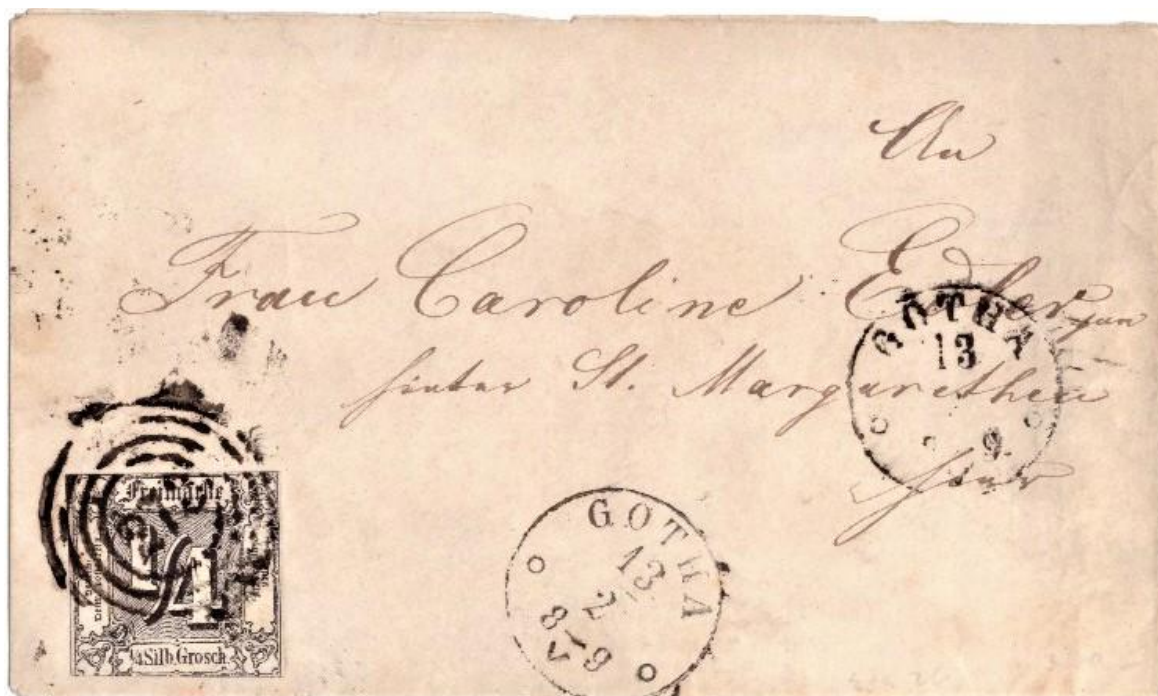 An
Frau Caroline Edler jun
hinter St. Margarethen
hier
GOTHA
13
9.
GOTHA
13
2
8-9
V
Freimarke
1/4
1/4 Silb. Grosch